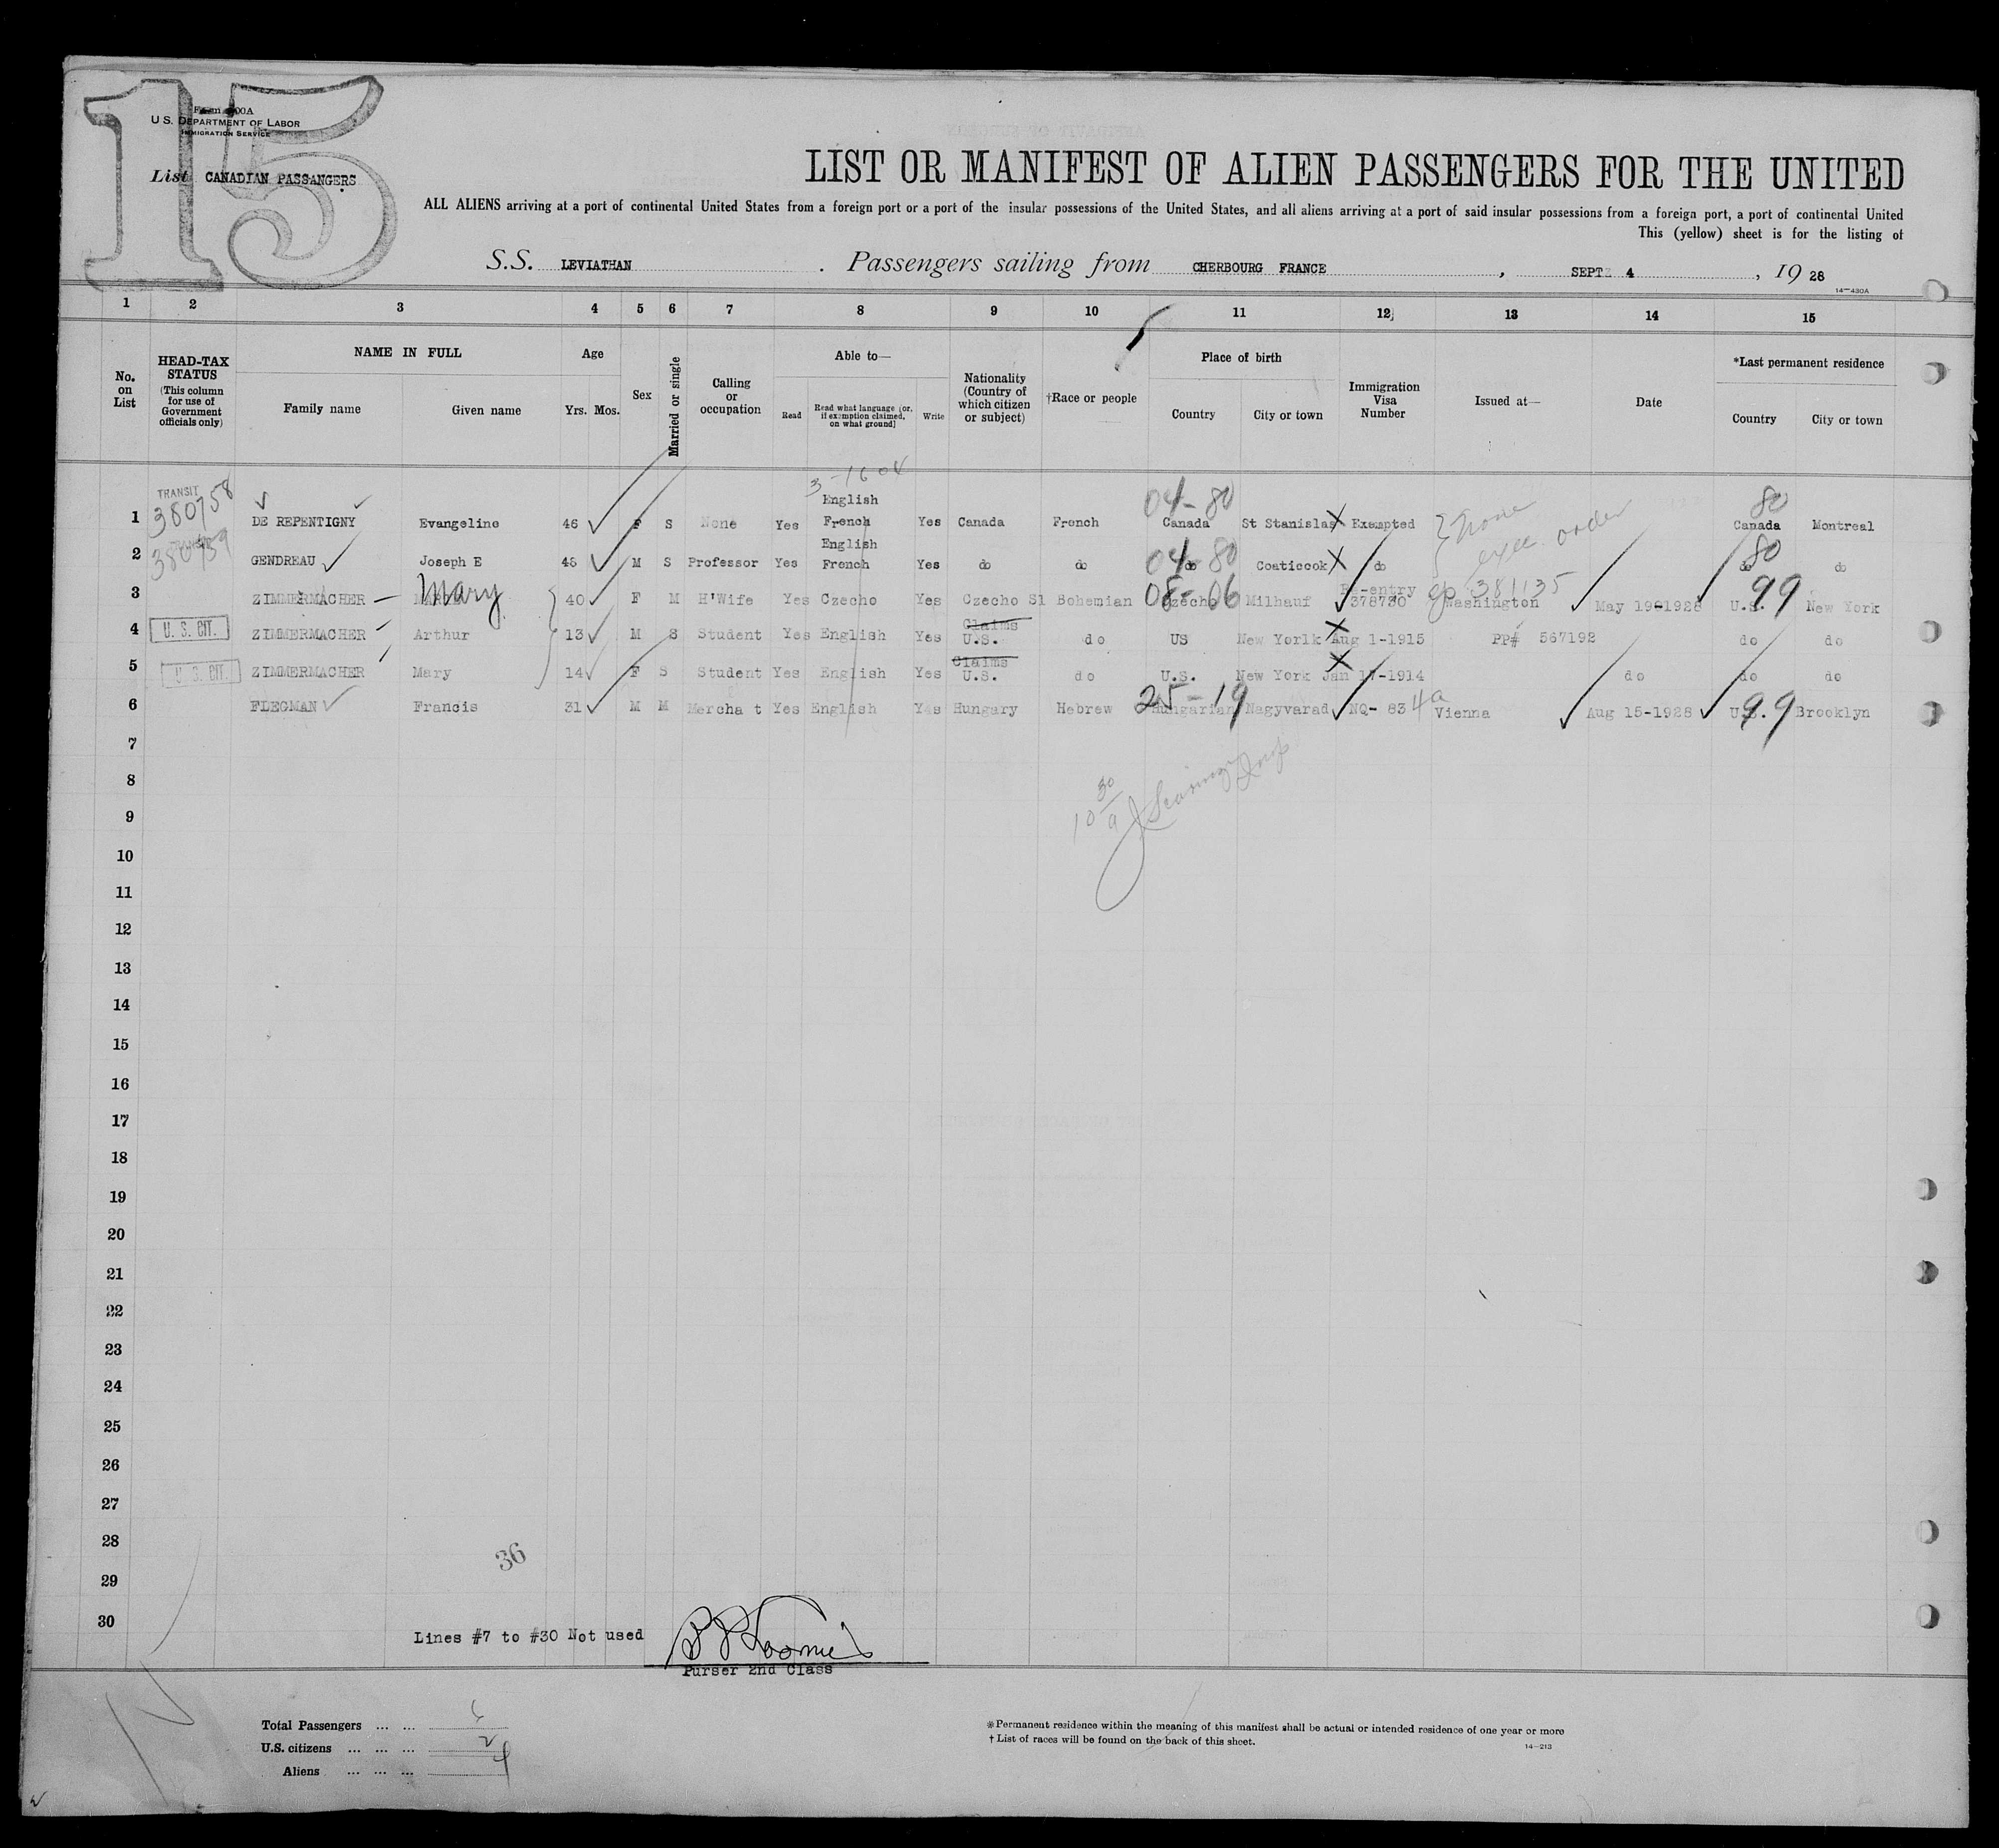 15
Form 500A
U.S. DEPARTMENT OF LABOR
IMMIGRATION SERVICE
List CANADIAN PASSANGERS
LIST OR MANIFEST OF ALIEN PASSENGERS FOR THE UNITED
ALL ALIENS arriving at a port of continental United States from a foreign port or a port of the insular possessions of the United States, and all aliens arriving at a port of said insular possessions from a foreign port, a port of continental United
This (yellow) sheet is for the listing of
S.S. LEVIATHAN . Passengers sailing from CHERBOURG FRANCE , SEPT 4 , 19 28
14—430A
1 2 3 4 5 6 7 8 9 10 11 12 13 14 15
No. on List
HEAD-TAX STATUS (This column for use of Government officials only)
NAME IN FULL
Family name Given name
Age
Yrs. Mos.
Sex
Married or single
Calling or occupation
Able to—
Read Read what language [or, if exemption claimed, on what ground] Write
Nationality (Country of which citizen or subject)
†Race or people
Place of birth
Country City or town
Immigration Visa Number
Issued at—
Date
*Last permanent residence
Country City or town
3-16 04
TRANSIT English 04-80 80
1 380758 DE REPENTIGNY Evangeline 46 F S None Yes French Yes Canada French Canada St Stanislas X Exempted none Canada Montreal
English exec. order
2 380759 GENDREAU Joseph E 48 M S Professor Yes French Yes do do 04-80 do Coaticook X do 80 do do
3 ZIMMERMACHER Mary 40 F M H'Wife Yes Czecho Yes Czecho Sl Bohemian 08-06 Czecho Milhauf Re-entry 378730 381135 Washington May 19-1928 U.S. 99 New York
Claims
4 U. S. CIT. ZIMMERMACHER Arthur 13 M S Student Yes English Yes U.S. do US New Yorlk X Aug 1-1915 PP# 567192 do do
Claims
5 U. S. CIT. ZIMMERMACHER Mary 14 F S Student Yes English Yes U.S. do U.S. New York X Jan 17-1914 do do do
6 FLEGMAN Francis 31 M M Mercha t Yes English Yes Hungary Hebrew 25-19 Hungarian Nagyvarad NQ- 83 4a Vienna Aug 15-1928 U.S. 99 Brooklyn
7
8
10 30/a
9
10
11
12
13
14
15
16
17
18
19
20
21
22
23
24
25
26
27
28
36
29
30
Lines #7 to #30 Not used
Purser 2nd Class
Total Passengers ... ... 6
U.S. citizens ... ... ... 2
Aliens ... ... ... 4
*Permanent residence within the meaning of this manifest shall be actual or intended residence of one year or more
† List of races will be found on the back of this sheet.
14—213